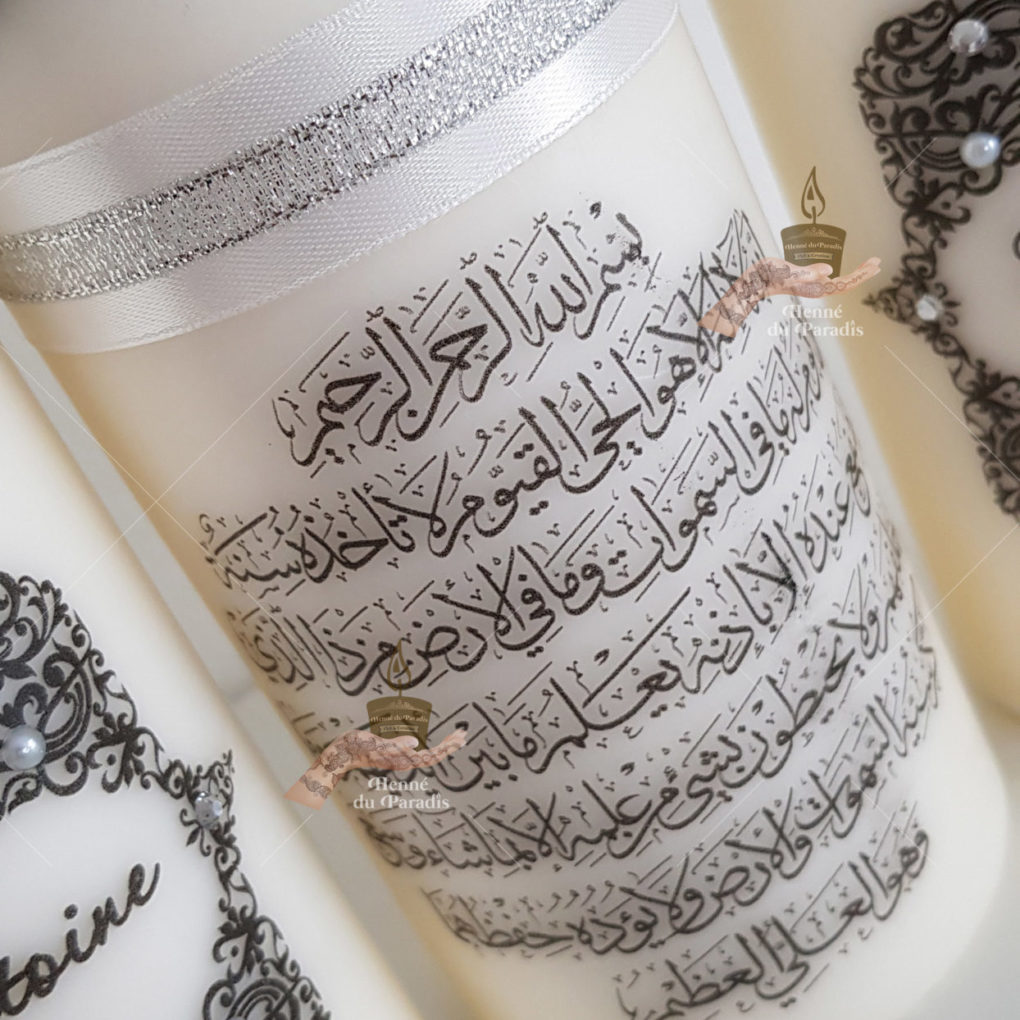 بسم الله الرحمن الرحيم
إلا هو الحي القيوم لا تأخذه سنة
ما في السموات وما في الأرض من ذا الذي
عنده إلا بإذنه يعلم ما بين
ولا يحيطون بشيء من علمه إلا بما شاء
السموات والأرض ولا يؤده حفظهما
وهو العلي العظيم
toine
Henné du Paradis
Henné
du Paradis
Henné du Paradis
Henné
du Paradis